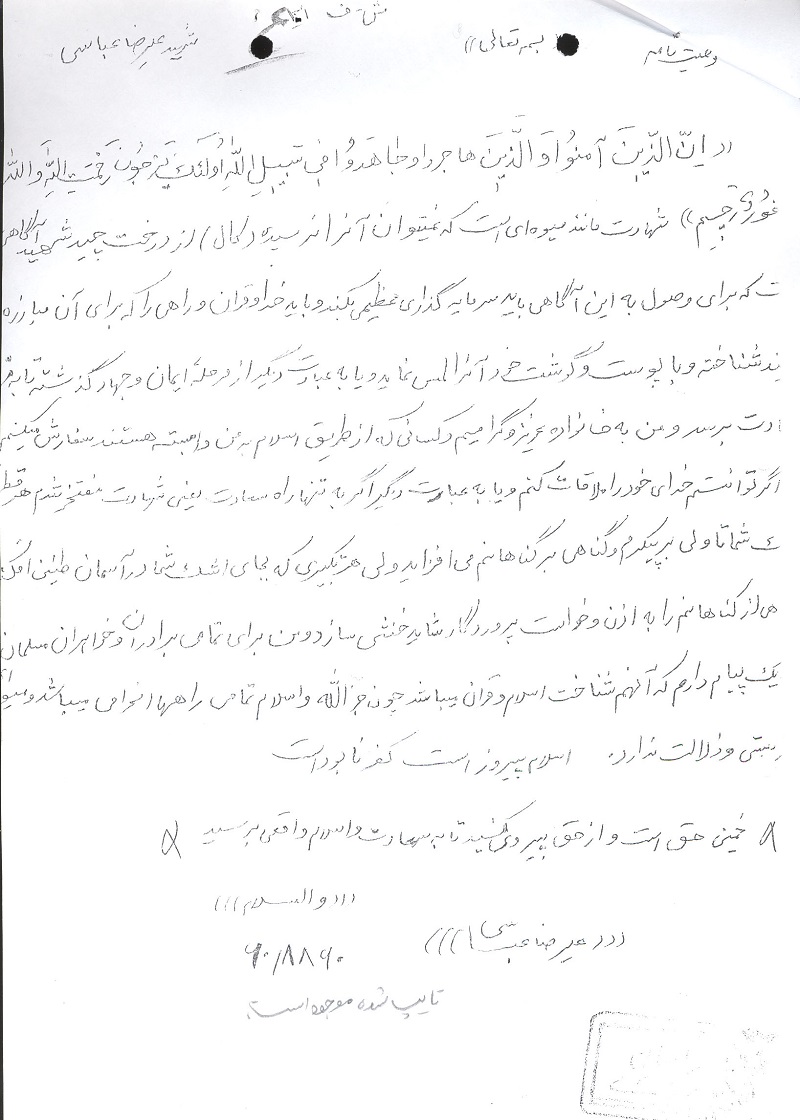 ش ف
وصیت نامه بسمه تعالی)) شهید علیرضا عباسی
((اِنَّ الذّینَ آمنوُا وَالَّذینَ هاجرداو جاهَدوُا فی سَبیلِ اللّهِ اُولئکَ یَرجُونَ رَحْمَتِ اللّهِ وَ اللّه
غفُورٌ رَحیم)) شهادت مانند میوه‌ای است که نمیتوان آنرا نرسیده (کال) از درخت چید شهید آگاهی
ت که برای وصول به این آگاهی باید سرمایه گذاری عظیمی بکند و باید خدا و قران و راهی را که برای آن مبارزه
ند شناخته و با پوست و گوشت خود آنرا لمس نماید و یا به عبارت دیگر از مرحلهٔ ایمان و جهاد گذشته تا به
ادت برسد و من به خانواده عزیز و گرامیم و کسانی که از طریق اسلام به من وابسته هستند سفارش میکنم
اگر توانستم خدای خود را ملاقات کنم و یا به عبارت دیگر اگر به تنها راه سعادت یعنی شهادت مفتخر شدم هر قط
ک شما تاولی بر پیکرم و گناهی بر گناهانم می افزاید ولی هر تکبیری که بجای اشک شما در آسمان طنین افک
هی از گناهانم را به اذن و خواست پروردگار شاید خنثی سازد و من برای تمامی برادران و خواهران مسلمان
یک پیام دارم که آنهم شناخت اسلام و قران میباشد چون جز الله و اسلام تمامی راهها انحرافی میباشد و
پستی و ذلالت ندارد. اسلام پیروز است کفر نابود است
خمینی حق است و از حق پیروی کنید تا به سعادت و اسلام واقعی برسید
(((والسلام)))
(((علیرضا عباسی)))
تایپ شده موجود است